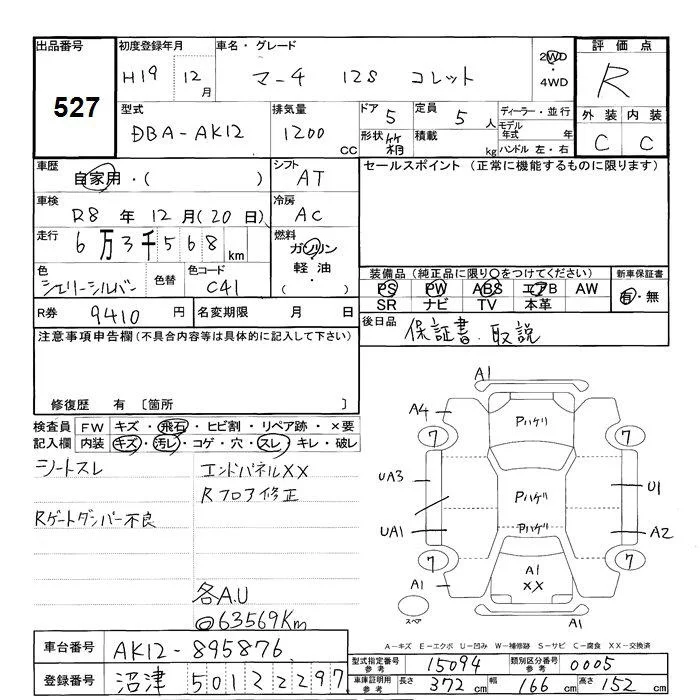 出品番号
527
初度登録年月
H19年 12月
車名・グレード
マーチ 12S コレット
2WD・4WD
評価点
R
外装 内装
C C
型式
DBA-AK12
排気量
1200 CC
ドア 5
形状 箱
定員 5人
積載 kg
ディーラー・並行
モデル年式 年
ハンドル 左・右
車歴
自家用・( )
シフト
AT
セールスポイント(正常に機能するものに限ります)
車検
R8年 12月(20日)
冷房
AC
走行
6万3千568km
燃料
ガソリン
軽油
( ・ )
色
シェリーシルバー
色替
色コード
C41
装備品(純正品に限り○をつけてください)
PS PW ABS エアB AW
SR ナビ TV 本革
新車保証書
有・無
R券 9410円
名変期限 月 日
後日品 保証書.取説
注意事項申告欄(不具合内容等は具体的に記入して下さい)
修復歴 有 〔箇所 〕
検査員 FW キズ・飛石・ヒビ割・リペア跡・×要
記入欄 内装 キズ・汚レ・コゲ・穴・スレ・キレ・破レ
シートスレ
エンドパネルXX
Rフロア修正
Rゲートダンパー不良
各A.U
@63569Km
A1
A4
Pハゲリ
7 7
UA3
Pハゲリ
U1
UA1
Pハゲリ
A2
7 7
A1
A1
XX
スペア
A1
A-キズ E-エクボ U-凹み W-補修跡 S-サビ C-腐食 XX-交換済
車台番号 AK12-895876
登録番号 沼津 501 2 2297
型式指定番号 参考 15094
類別区分番号 参考 0005
車庫証明用 参考 長さ 372cm 幅 166cm 高さ 152cm